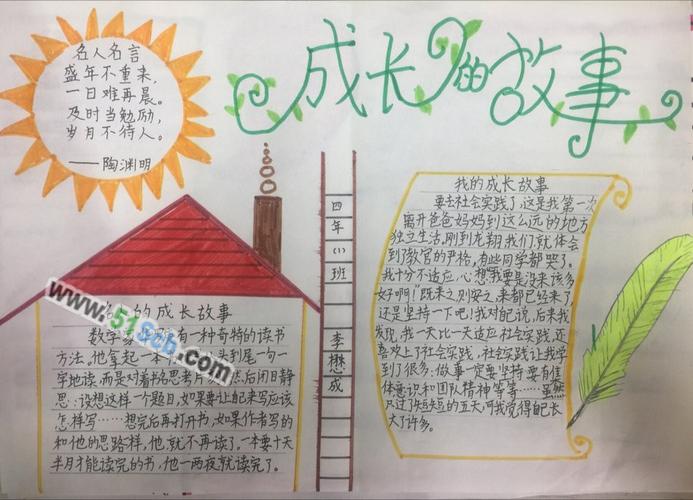 成长的故事
名人名言
盛年不重来,
一日难再晨。
及时当勉励,
岁月不待人。
——陶渊明
四年(1)班 李懋成
的成长故事
数学家 有一种奇特的读书
方法。他拿起一本 头到尾一句一
字地读,而是对着书名思考片 然后闭目静
思:设想这样一个题目,如果要让自己来写应该
怎样写……想完后再打开书,如果作者写的
和他的思路一样,他就不再读了。一本要十天
半月才能读完的书,他一两夜就读完了。
www.51Scb.com
我的成长故事
要去社会实践了,这是我第一次
离开爸爸妈妈到这么远的地方
独立生活。刚到龙翔我们就体会
到了教官的严格,有些同学都哭了。
我十分不适应,心想:我要是没来该多
好啊!"既来之,则安之,来都已经来了,
还是坚持一下吧!我对自己说,后来我
发现,我一天比一天适应社会实践,还
喜欢上了社会实践。社会实践让我学
到了很多:做事一定要坚持要有集
体意识和团队精神等等……虽然
只过了短短的五天,可我觉得自己长
大了许多。